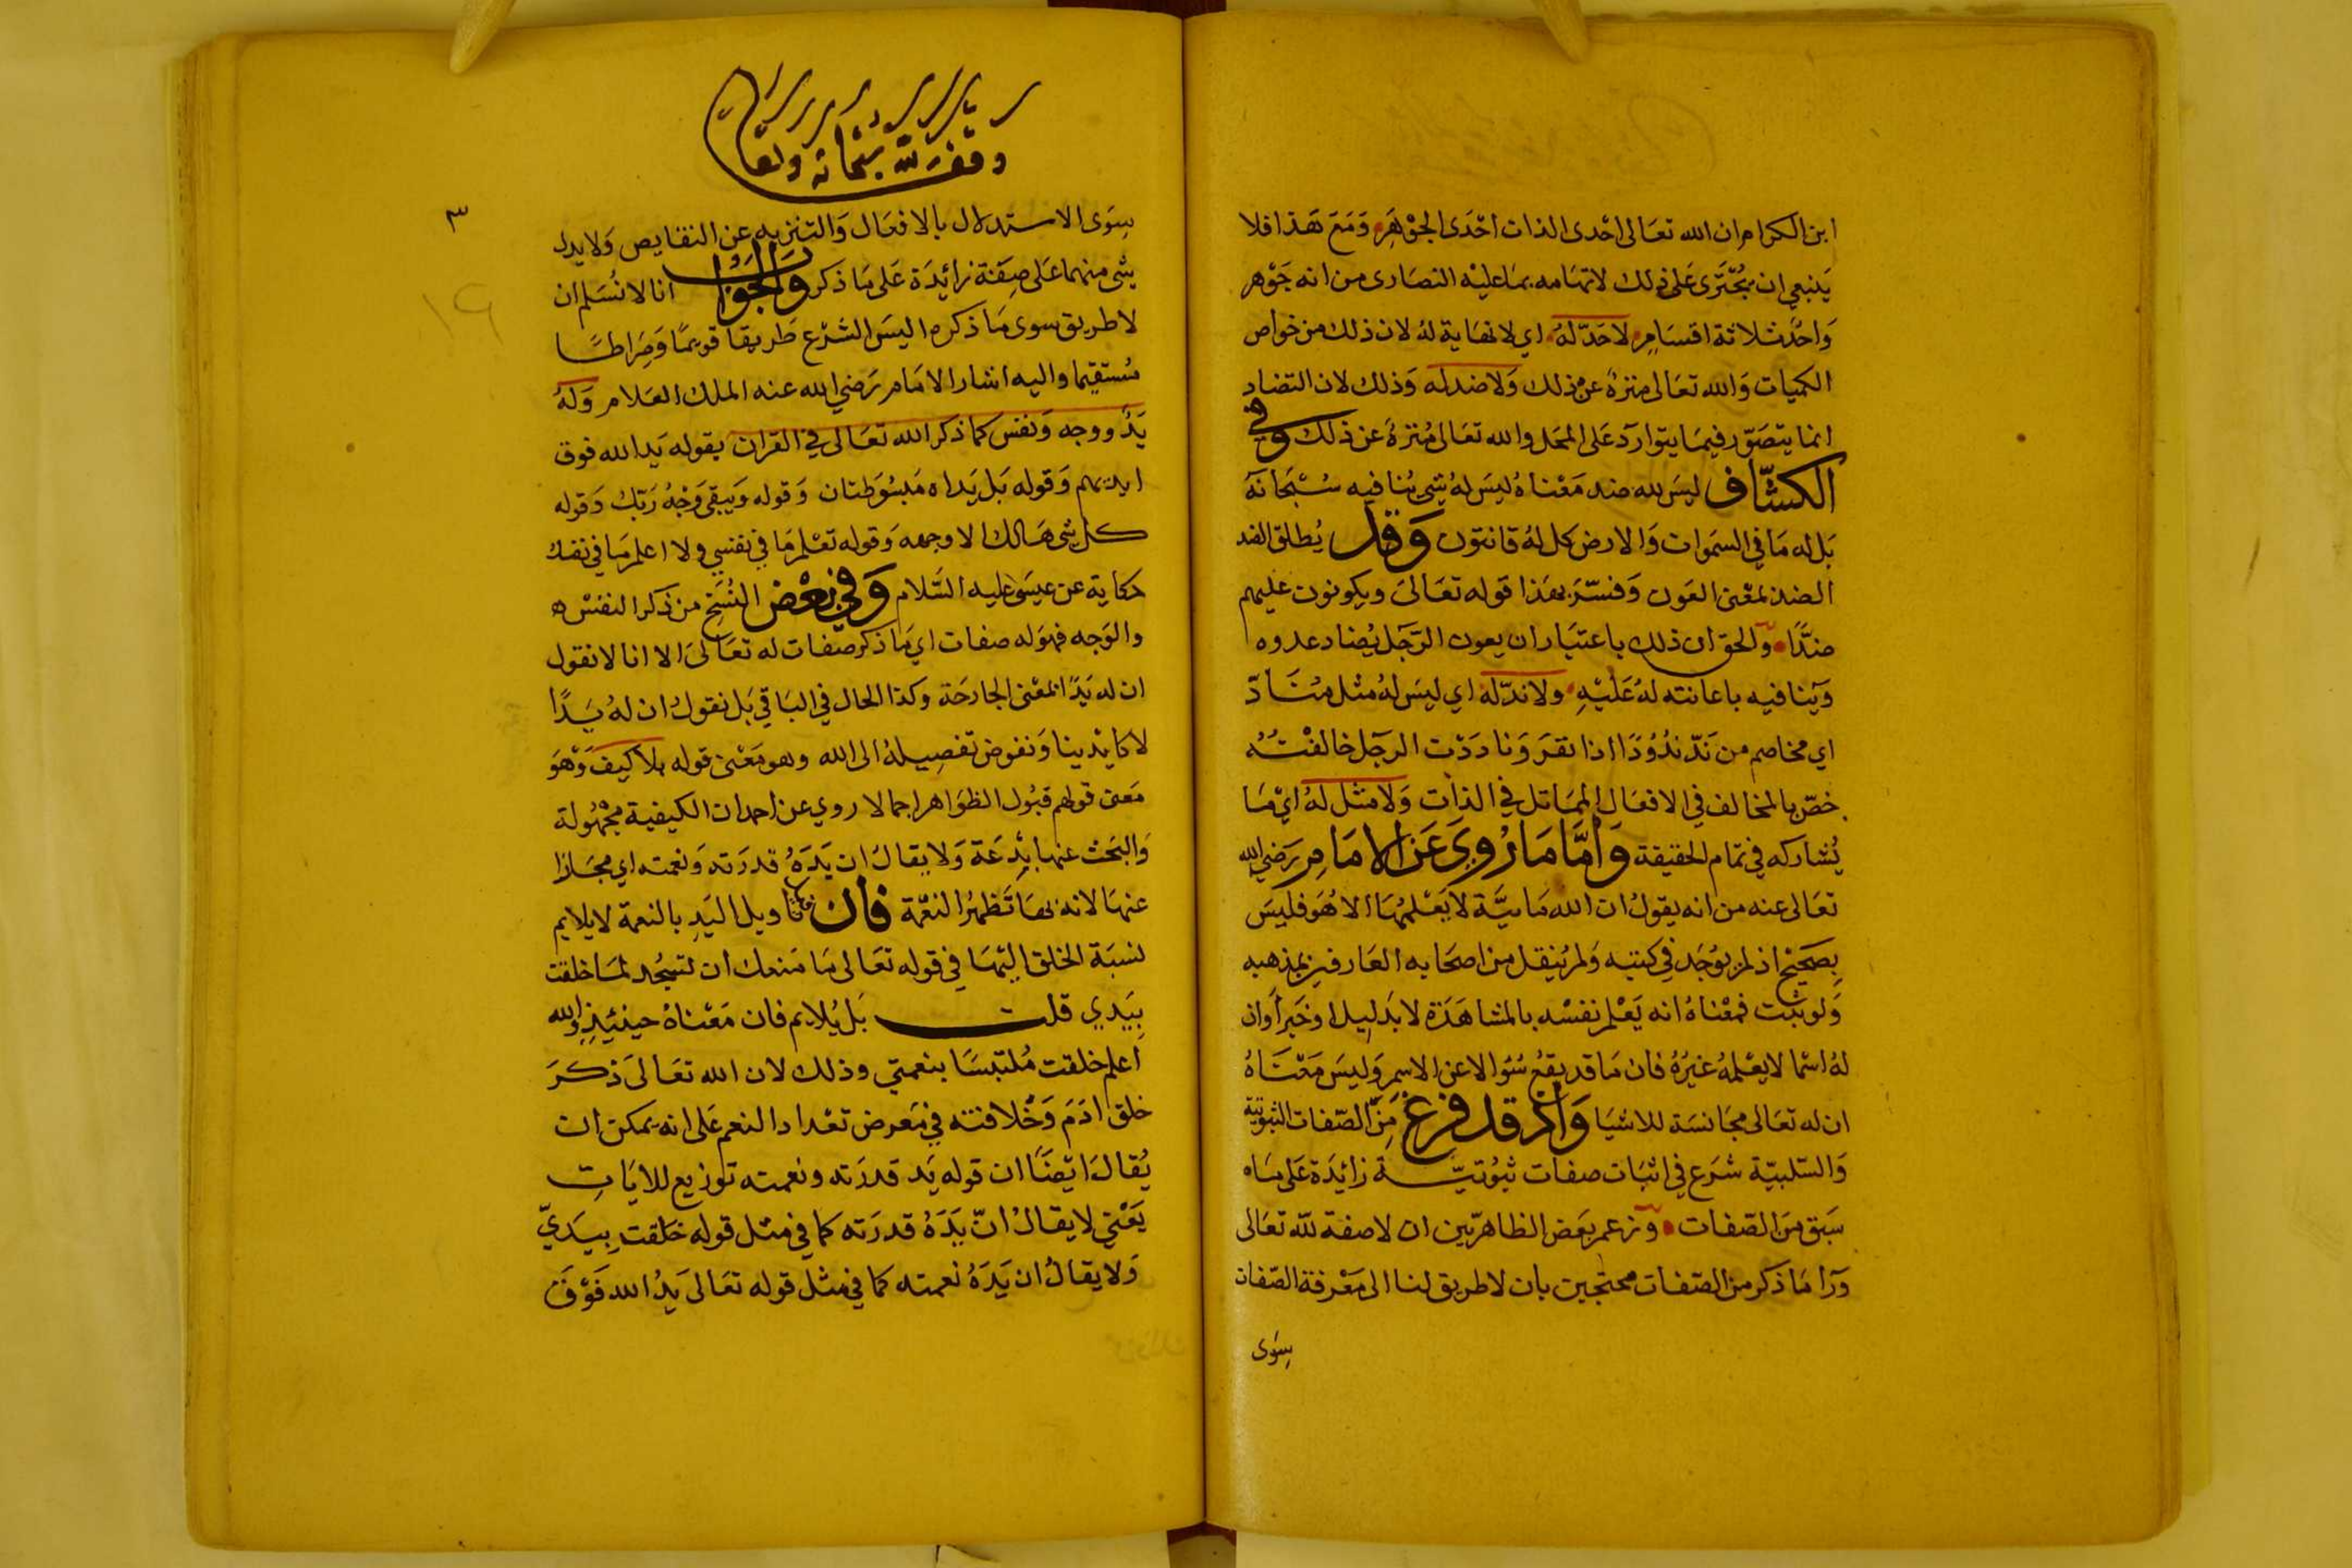 ابن الكرام ان الله تعالى احدى الذات احدى الجوهر ومع هذا فلا
ينبغي ان يجترى على ذلك لاتهامه بما عليه النصارى من انه جوهر
واحد ثلاثة اقسام لا حد له اي لا نهاية له لان ذلك من خواص
الكميات والله تعالى منزه عن ذلك ولا ضد له وذلك لان التضاد
انما يتصور فيما يتوارد على المحل والله تعالى منزه عن ذلك وفي
الكشاف ليس لله ضد معناه ليس له شي ينافيه سبحانه
بل له ما في السموات والارض كل له قانتون وقد يطلق الضد
الضد لمعنى العون وفسر بهذا قوله تعالى ويكونون عليهم
ضدا والحق ان ذلك باعتبار ان يعون الرجل يضاد عدوه
وينافيه باعانته له عليه ولا ند له اي ليس له مثل مناد
اي مخاصم من ند ندودا اذا نفر وناددت الرجل خالفته
خص بالمخالف في الافعال المماثل في الذات ولا مثل له اي ما
يشاركه في تمام الحقيقة واما ما روي عن الامام رضي الله
تعالى عنه من انه يقول ان الله ماييّة لا يعلمها الا هو فليس
بصحيح اذ لم يوجد في كتبه ولم ينقل من اصحابه العارفين بمذهبه
ولو ثبت فمعناه انه يعلم نفسه بالمشاهدة لا بدليل او خبر او ان
له اسما لا يعلمه غيره فان ما قد يقع سؤالا عن الاسم وليس معناه
ان له تعالى مجانسة للاشيا واذ قد فرغ من الصفات الثبوتية
والسلبية شرع في اثبات صفات ثبوتية زائدة على ما
سبق من الصفات وزعم بعض الظاهريين ان لا صفة لله تعالى
ورا ما ذكر من الصفات محتجين بان لا طريق لنا الى معرفة الصفات
سوى
وقف لله سبحانه وتعالى
٣
١٩
سوى الاستدلال بالافعال والتنزيه عن النقايص ولا يدل
شي منهما على صفة زائدة على ما ذكر والجواب انا لا نسلم ان
لا طريق سوى ما ذكره اليس الشرع طريقا قويما وصراطا
مستقيما واليه اشار الامام رضي الله عنه الملك العلام وله
يد ووجه ونفس كما ذكر الله تعالى في القران بقوله يد الله فوق
ايديهم وقوله بل يداه مبسوطتان وقوله ويبقى وجه ربك وقوله
كل شي هالك الا وجهه وقوله تعلم ما في نفسي ولا اعلم ما في نفسك
حكاية عن عيسى عليه السلام وفي بعض النسخ من ذكر النفس
والوجه فهو له صفات اي ما ذكر صفات له تعالى الا انا لا نقول
ان له يدا لمعنى الجارحة وكذا الحال في الباقي بل نقول ان له يدا
لا كايدينا ونفوض تفصيله الى الله وهو معنى قوله بلا كيف وهو
معنى قولهم قبول الظواهر اجمالا روي عن احمد ان الكيفية مجهولة
والبحث عنها بدعة ولا يقال ان يده قدرته ونعمته اي مجازا
عنها لانه بها تظهر النعمة فان قلت تاويل اليد بالنعمة لا يلايم
نسبة الخلق اليها في قوله تعالى ما منعك ان تسجد لما خلقت
بيدي قلت بل يلايم فان معناه حينئيذ والله
اعلم خلقت ملتبسا بنعمتي وذلك لان الله تعالى ذكر
خلق ادم وخلافته في معرض تعداد النعم على انه يمكن ان
يقال ايضا ان قوله يد قدرته ونعمته توزيع للايات
يعني لا يقال ان يده قدرته كما في مثل قوله خلقت بيدي
ولا يقال ان يده نعمته كما في مثل قوله تعالى يد الله فوق